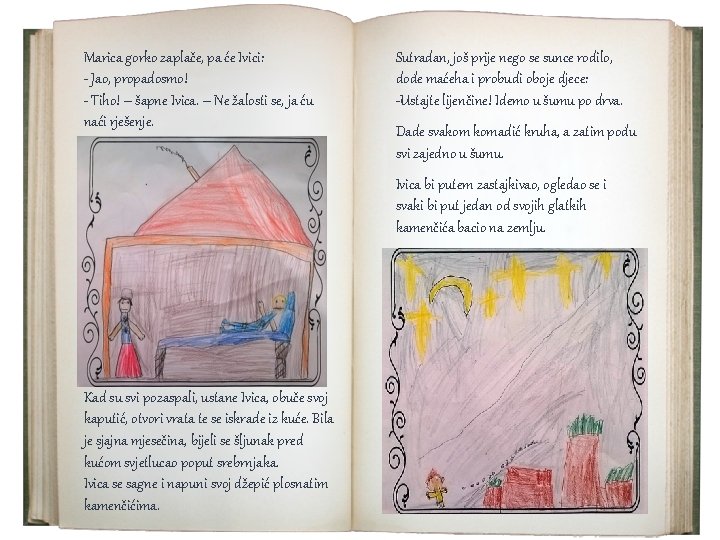 Marica gorko zaplače, pa će Ivici:
- Jao, propadosmo!
- Tiho! – šapne Ivica. – Ne žalosti se, ja ću
naći rješenje.
Kad su svi pozaspali, ustane Ivica, obuče svoj
kaputić, otvori vrata te se iskrade iz kuće. Bila
je sjajna mjesečina, bijeli se šljunak pred
kućom svjetlucao poput srebrnjaka.
Ivica se sagne i napuni svoj džepić plosnatim
kamenčićima.
Sutradan, još prije nego se sunce rodilo,
dođe maćeha i probudi oboje djece:
-Ustajte lijenčine! Idemo u šumu po drva.
Dade svakom komadić kruha, a zatim pođu
svi zajedno u šumu.
Ivica bi putem zastajkivao, ogledao se i
svaki bi put jedan od svojih glatkih
kamenčića bacio na zemlju.